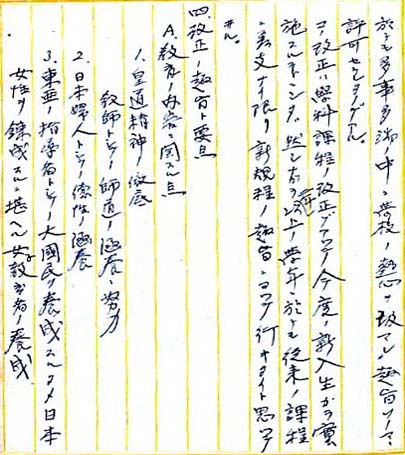 於テモ多事多端ノ中ニ貴校ノ熱心ヲ極マル趣旨
許可セラレタノデアル。
コノ改正ハ學科課程ノ改正デアツテ今度ノ新入生カラ實
施スルモノデ 然シ第二學年以上ノ學年ニ於テモ從來ノ課程
ニ差支ナイ限リ新規程ノ趣旨ニヨツテ行キタイト思ツテ
ヰル。
四、改正ノ趣旨ト要点
A. 教育ノ内容ニ関スル点
1. 皇道精神ノ徹底
教師トシテノ師道ノ涵養ニ努力
2. 日本婦人トシテノ徳性ノ涵養
3. 東亜ノ指導者トシテノ大國民ヲ養成スルタメ日本
女性ヲ錬成スルニ堪ヘル女教育者ノ養成